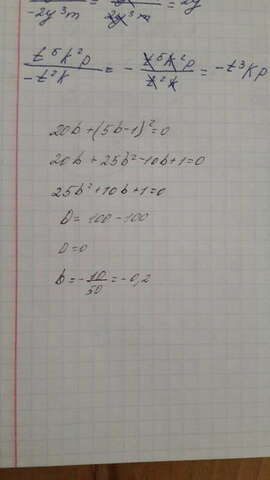 -2y³m = 2y³m = 2y
t⁵k²p / -t²k = - t⁵k²p / t²k = -t³kp
20b+(5b-1)²=0
20b+25b²-10b+1=0
25b²+10b+1=0
D=100-100
D=0
b=-10/50=-0,2